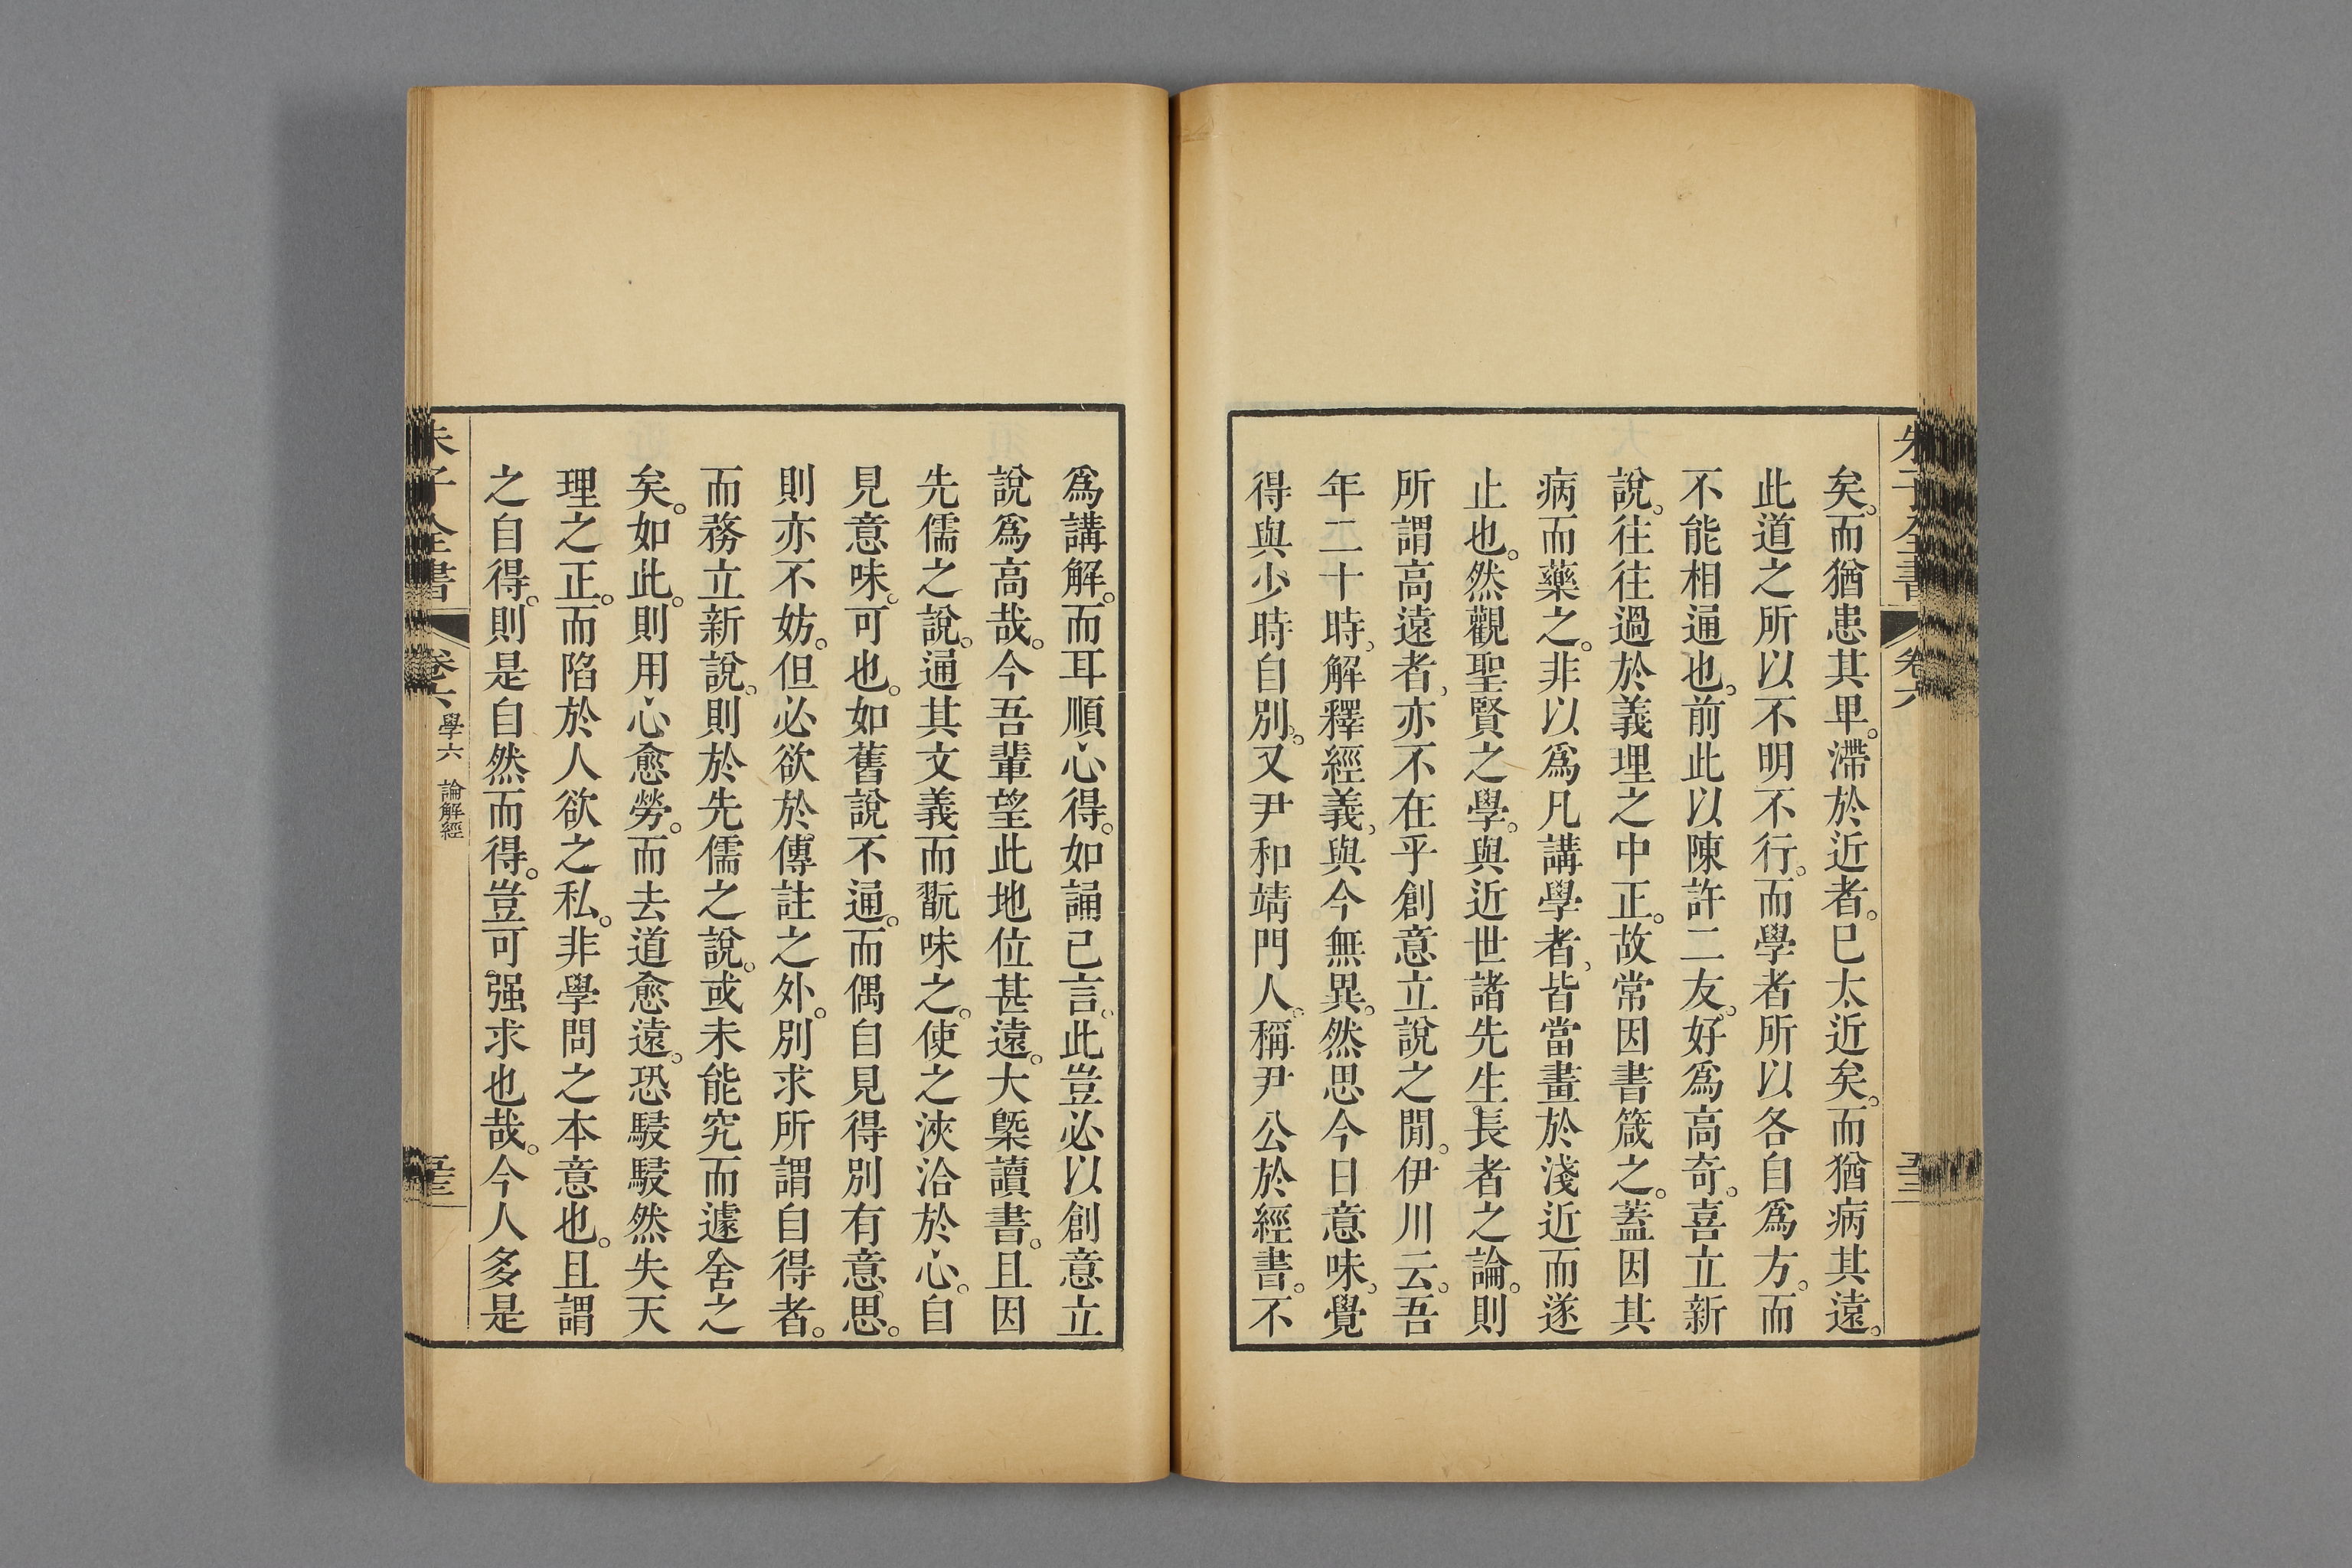 朱子全書 卷六 五十二
矣。而猶患其卑。滯於近者。已太近矣。而猶病其遠。
此道之所以不明不行。而學者所以各自爲方。而
不能相通也。前此以陳許二友。好爲高奇。喜立新
說。往往過於義理之中正。故常因書箴之。蓋因其
病而藥之。非以爲凡講學者、皆當畫於淺近而遂
止也。然觀聖賢之學。與近世諸先生長者之論。則
所謂高遠者、亦不在乎創意立說之閒。伊川云。吾
年二十時、解釋經義、與今無異。然思今日意味、覺
得與少時自別。又尹和靖門人。稱尹公於經書。不
爲講解。而耳順心得。如誦己言。此豈必以創意立
說爲高哉。今吾輩望此地位甚遠。大槩讀書。且因
先儒之說。通其文義而翫味之。使之浹洽於心。自
見意味。可也。如舊說不通。而偶自見得別有意思。
則亦不妨。但必欲於傳註之外。別求所謂自得者。
而務立新說。則於先儒之說。或未能究而遽舍之
矣。如此。則用心愈勞。而去道愈遠。恐駸駸然失天
理之正。而陷於人欲之私。非學問之本意也。且謂
之自得。則是自然而得。豈可强求也哉。今人多是
朱子全書 卷六 學六 論解經